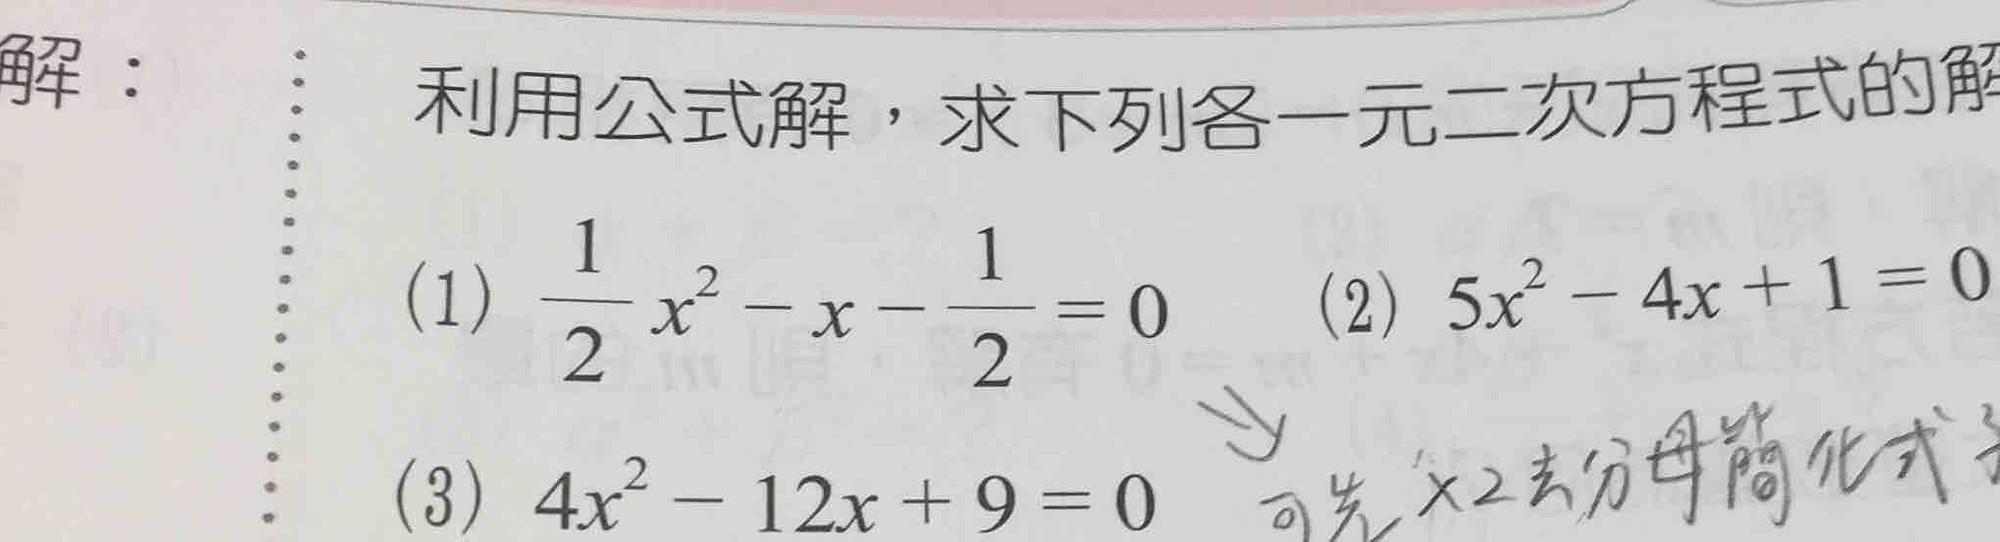 解：
利用公式解，求下列各一元二次方程式的解
(1) 1/2 x² − x − 1/2 = 0 (2) 5x² − 4x + 1 = 0
(3) 4x² − 12x + 9 = 0
可先×2去分母簡化式子